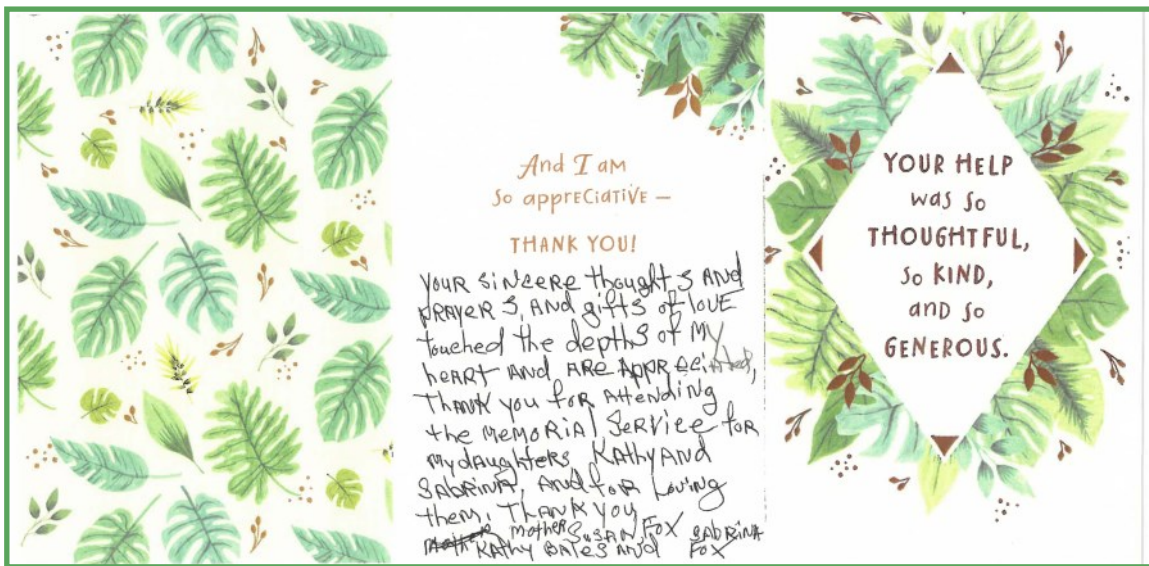 And I am
so appreciative —
THANK YOU!
YOUR SINCERE thoughts AND
PRAYERS, AND gifts of LOVE
touched the depths of MY
heart AND ARE APPRECIATED,
THANK you for Attending
the MEMORIAL Service for
My daughters, Kathy AND
SABRINA, AND for Loving
them, THANK YOU
mother SUSAN FOX SABRINA
KAthy BAtes AND FOX
YOUR HELP
was so
THOUGHTFUL,
so KIND,
and so
GENEROUS.